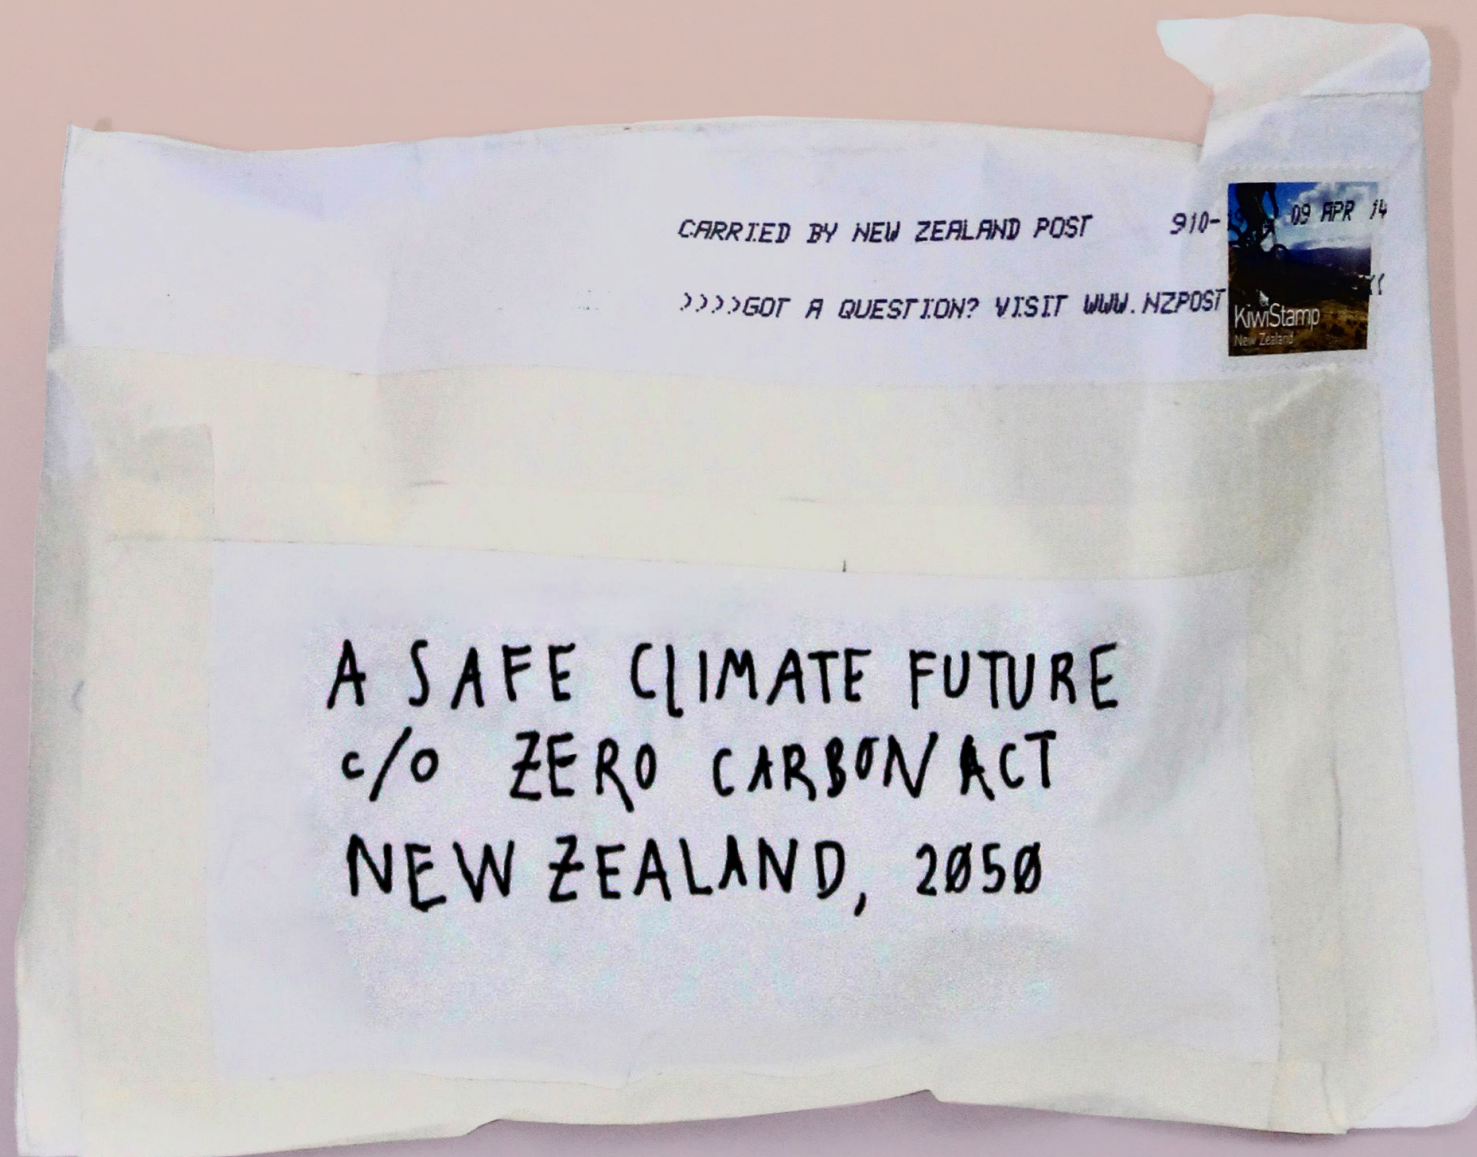 CARRIED BY NEW ZEALAND POST 910- 09 APR 14
>>>>GOT A QUESTION? VISIT WWW.NZPOST
KiwiStamp
New Zealand
A SAFE CLIMATE FUTURE
c/o ZERO CARBON ACT
NEW ZEALAND, 2050